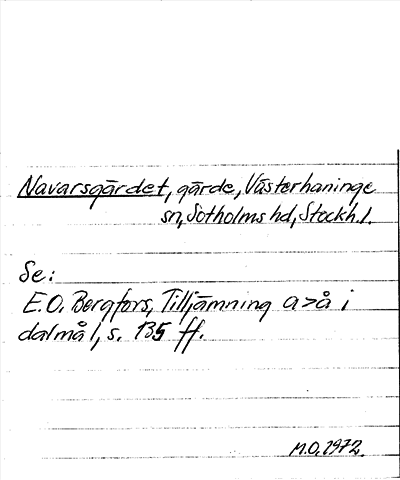 Navarsgärdet, gärde, Västerhaninge
sn, Sotholms hd, Stockh. l.
Se:
E.O. Bergfors, Tilljämning a>å i
dalmål, s. 135 ff.
M.O. 1972.